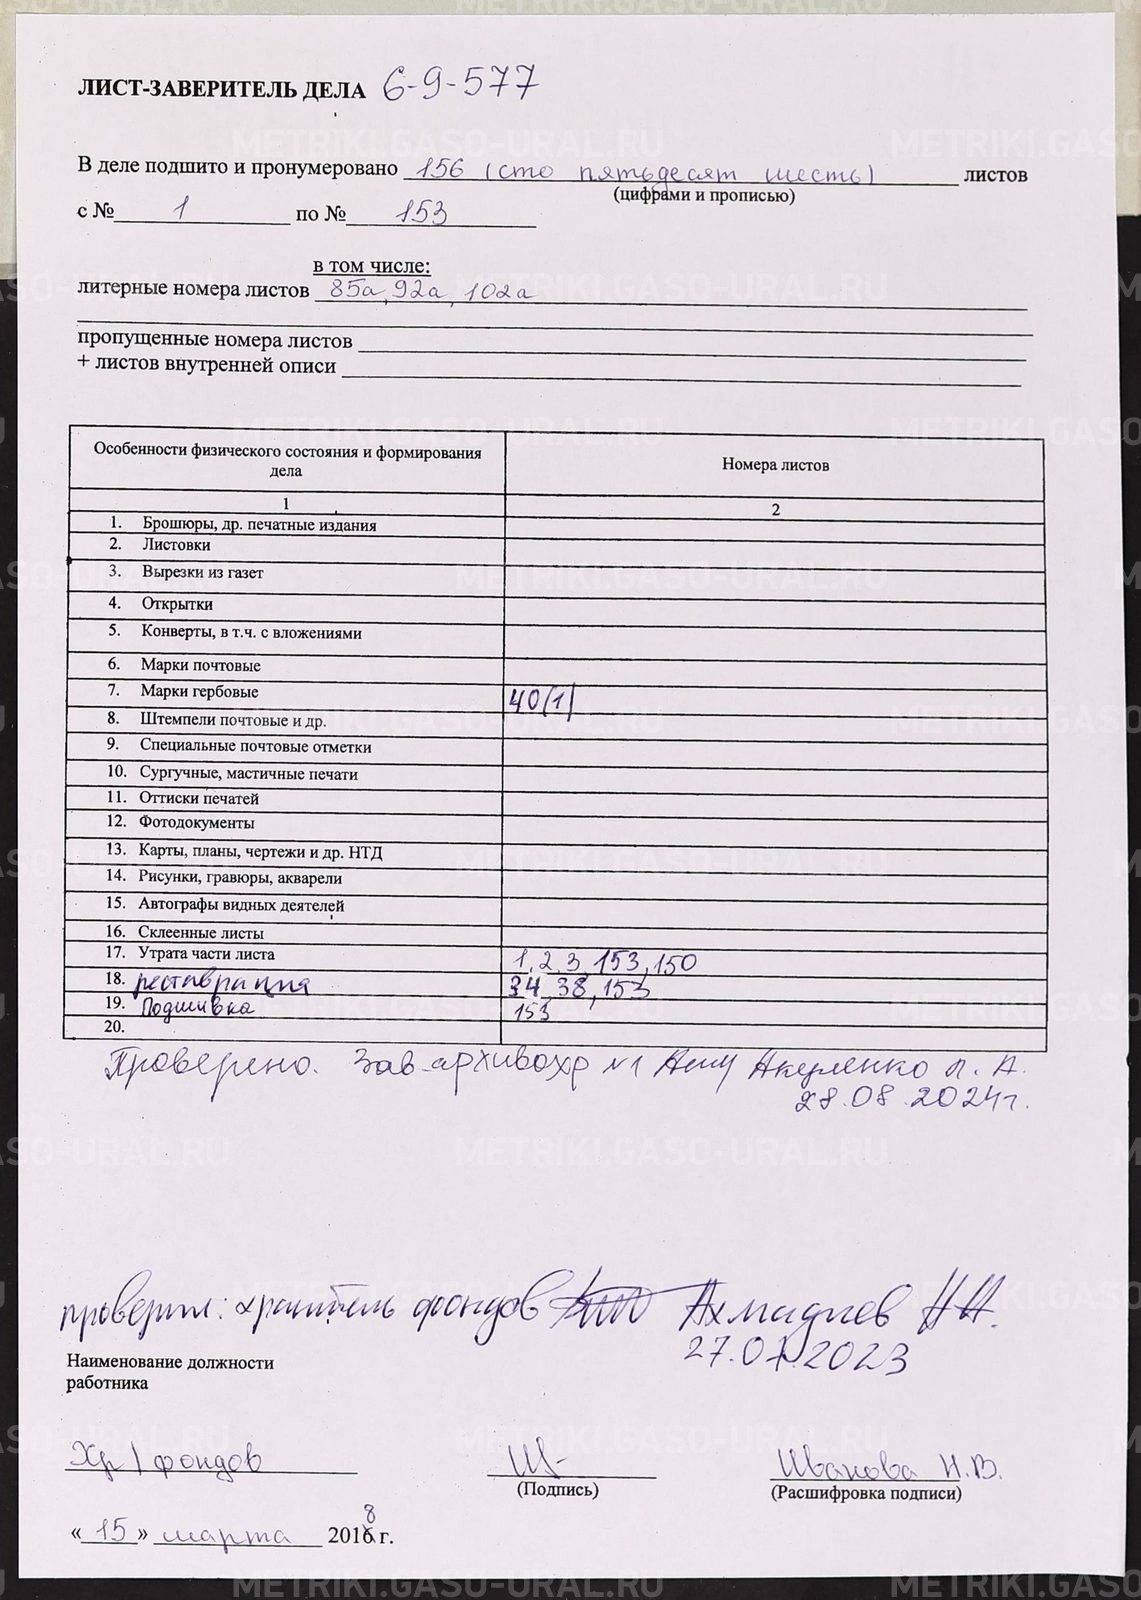 ЛИСТ-ЗАВЕРИТЕЛЬ ДЕЛА 6-9-577
В деле подшито и пронумеровано 156 (сто пятьдесят шесть) листов
(цифрами и прописью)
с № 1 по № 153
в том числе:
литерные номера листов 85а, 92а, 102а
пропущенные номера листов
+ листов внутренней описи
Особенности физического состояния и формирования дела Номера листов
1 2
1. Брошюры, др. печатные издания
2. Листовки
3. Вырезки из газет
4. Открытки
5. Конверты, в т.ч. с вложениями
6. Марки почтовые
7. Марки гербовые 40(1)
8. Штемпели почтовые и др.
9. Специальные почтовые отметки
10. Сургучные, мастичные печати
11. Оттиски печатей
12. Фотодокументы
13. Карты, планы, чертежи и др. НТД
14. Рисунки, гравюры, акварели
15. Автографы видных деятелей
16. Склеенные листы
17. Утрата части листа 1, 2, 3, 153, 150
18. реставрация 34, 38, 153
19. Подшивка 153
20.
Проверено. Зав. архивохр №1 Акуленко Л. А.
28.08.2024г.
проверил: хранитель фондов Ахмадиев Н.Н.
27.01.2023
Наименование должности
работника
Хр фондов Иванова Н.В.
(Подпись) (Расшифровка подписи)
« 15 » марта 2018 г.
METRIKI.GASO-URAL.RU